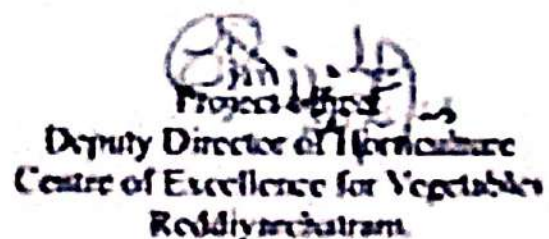 Project Officer
Deputy Director of Horticulture
Centre of Excellence for Vegetables
Reddiyarchatram